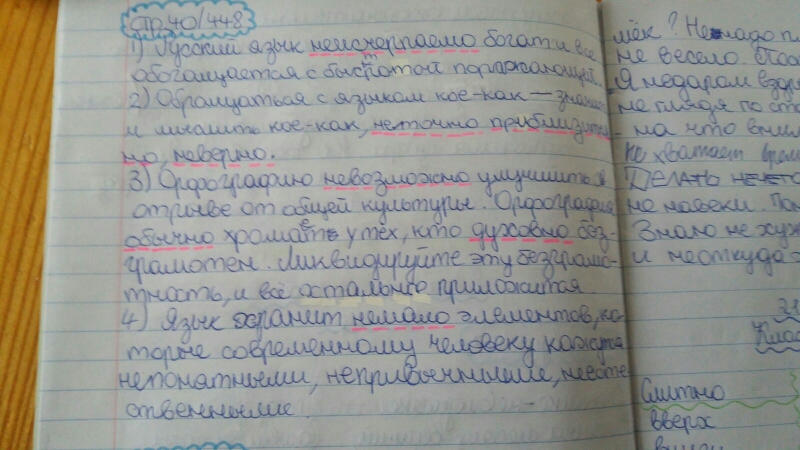 стр.40/448
1) Русский язык неисчерпаемо богат и всё
обогащается с быстротой поражающей.
2) Обращаться с языком кое-как — значит
и мыслить кое-как, неточно приблизитель-
но, неверно.
3) Орфографию невозможно улучшить в
отрыве от общей культуры. Орфография
обычно хромает у тех, кто духовно без-
грамотен. Ликвидируйте эту безграмо-
тность, и всё остальное приложится
4) Язык хранит немало элементов, ко-
торые современному человеку кажутся
непонятными, непривычными, неесте-
ственными.
мёк? Не надо
не весело.
Я недаром
не глядя по
ма что
не хватает
Делать
не навеки.
Знало не
и неоткуда
Слитно
вверх